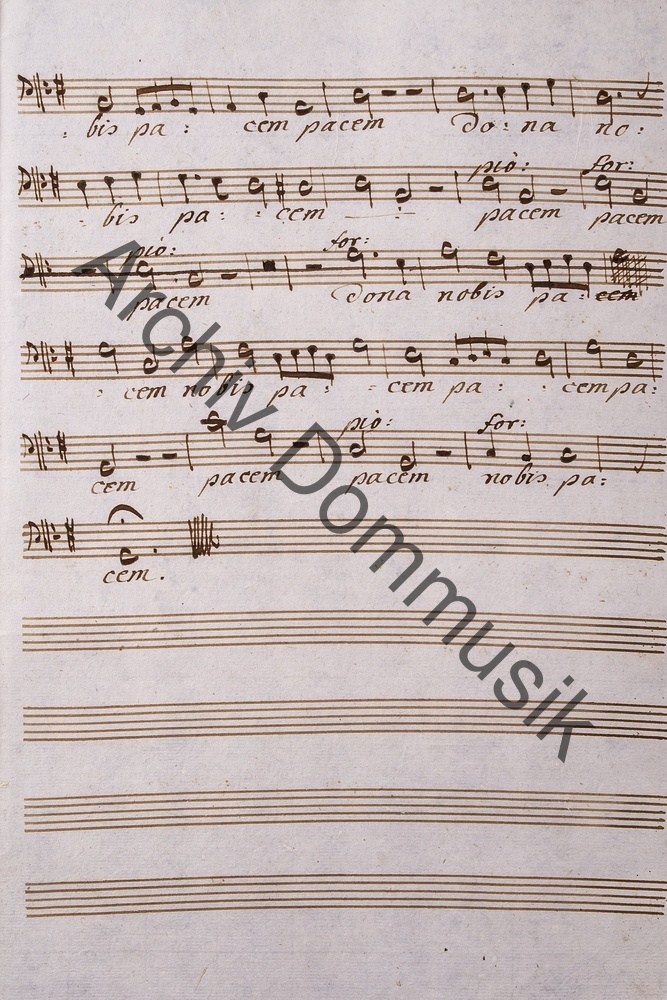 bis pa: cem pacem Do: na no:
piò: for:
bis pa: cem pacem pacem
piò: for:
pacem Dona nobis pa: cem
cem nobis pa: cem pa: cem pa:
piò: for:
cem pacem pacem nobis pa:
cem.
Archiv Dommusik